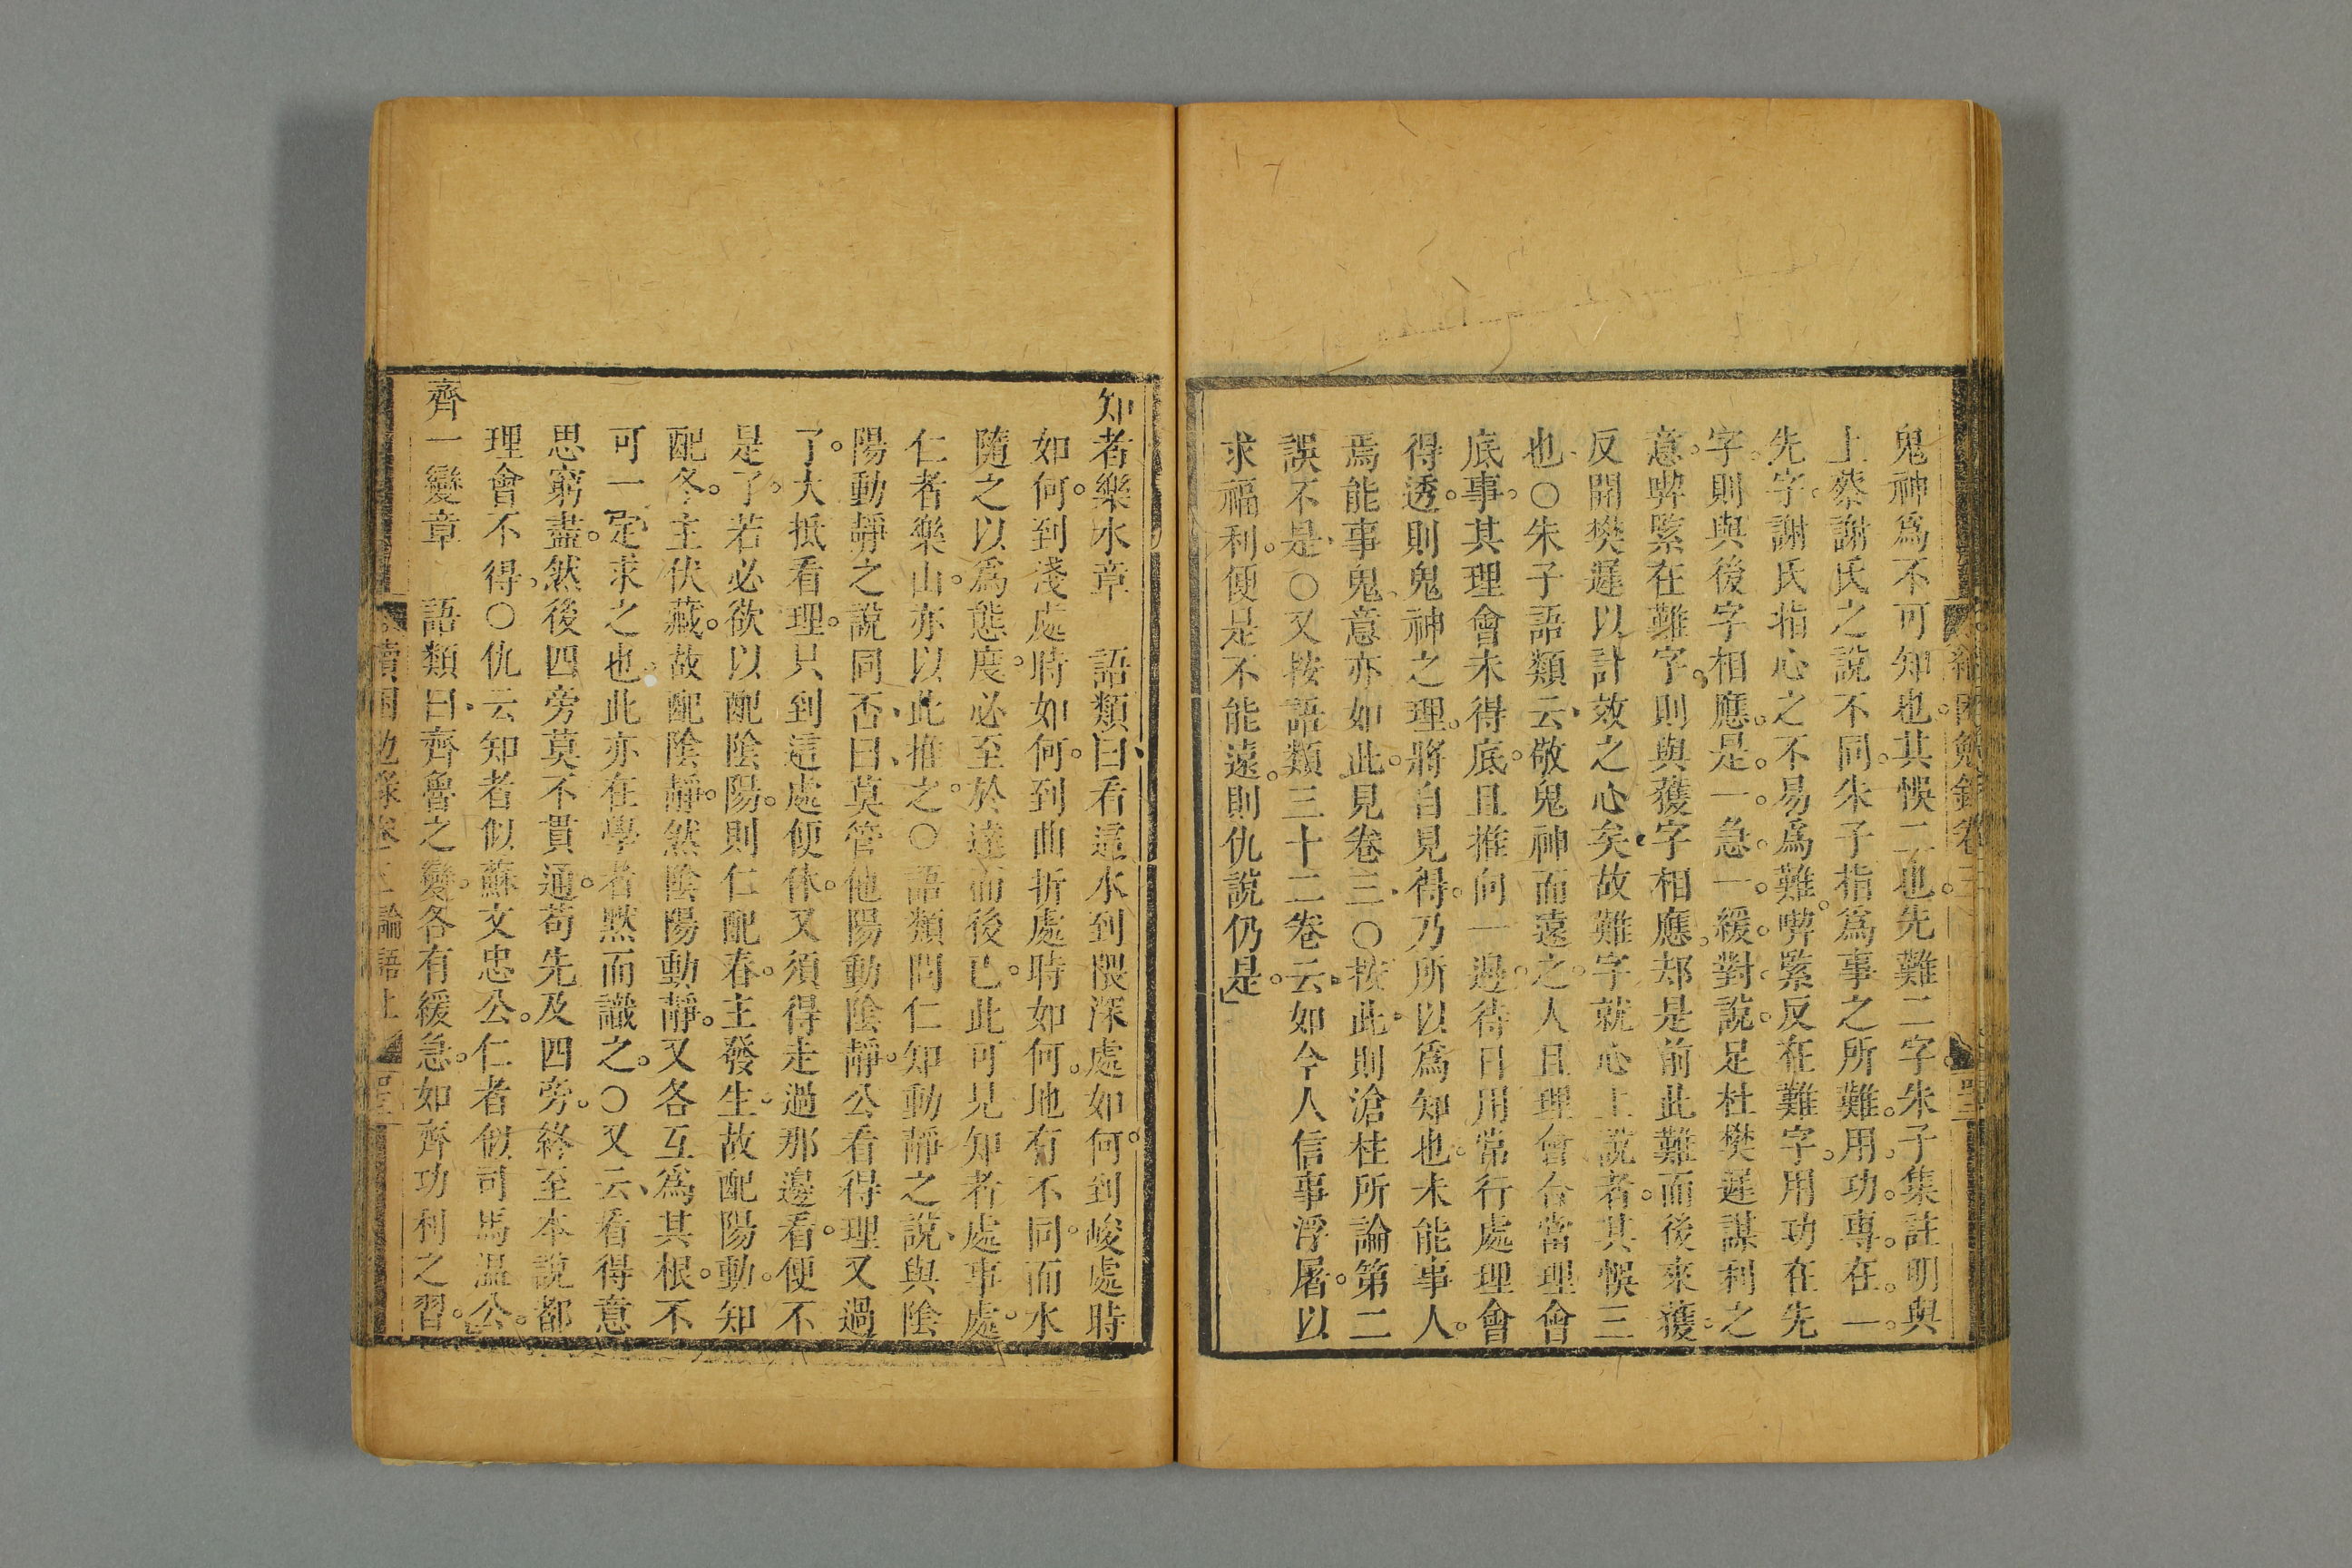 鬼神爲不可知也。其悞二也。先難二字。朱子集註明與
上蔡謝氏之說不同。朱子指爲事之所難。用功。專。在。一。
先字。謝氏指心之不易爲難。弊緊反在難字。用功在先
字。則與後字相應。是。一。急。一。緩。對。說。足杜樊遲謀利之
意。弊緊在難字。則與獲字相應。却是前此難而後來獲。
反開樊遲以計效之心矣。故難字就心上說者。其悞三
也。○朱子語類云、敬鬼神而遠之。人且理會合當理會
底事。其理會未得底。且推向一邊。待日用常行處理會
得透。則鬼神之理。將自見得。乃所以爲知也。未能事人。
焉能事鬼。意亦如此。見卷三。○按此。則滄柱所論第二
誤不是、○又按語類三十二卷云。如今人信事浮屠。以
求福利。便是不能遠。則仇說仍是。
知者樂水章　語類曰、看這水到隈深處。如何。到峻處時
如何。到淺處時如何。到曲折處時如何。地有不同。而水
隨之以爲態度。必至於達而後已。此可見知者處事處。
仁者樂山。亦以此推之。○語類問仁知動靜之說、與陰
陽動靜之說同否、曰、莫管他陽動陰靜。公看得理又過
了。大抵看理。只到這處便休。又須得走過那邊看。便不
是了。若必欲以配陰陽。則仁配春。主發生。故配陽動。知
配冬。主伏藏。故配陰靜。然陰陽動靜。又各互爲其根。不
可一定求之也。此亦在學者黙而識之。○又云、看得意
思窮盡。然後四旁莫不貫通。苟先及四旁。終至本說都
理會不得。○仇云知者似蘇文忠公。仁者似司馬温公。
齊一變章　語類曰、齊魯之變。各有緩急。如齊功利之習。
讀困勉錄卷三 論語上